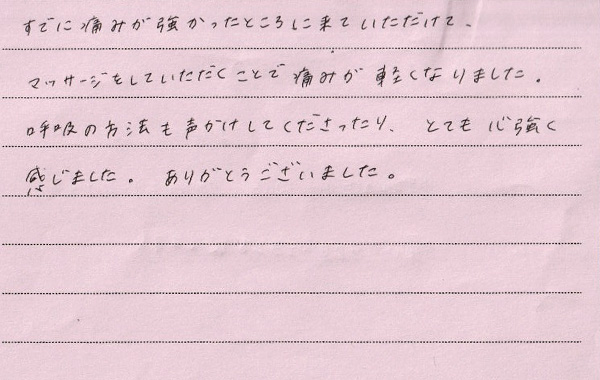 すでに痛みが強かったところに来ていただけて、
マッサージをしていただくことで痛みが軽くなりました。
呼吸の方法も声かけしてくださったり、とても心強く
感じました。ありがとうございました。